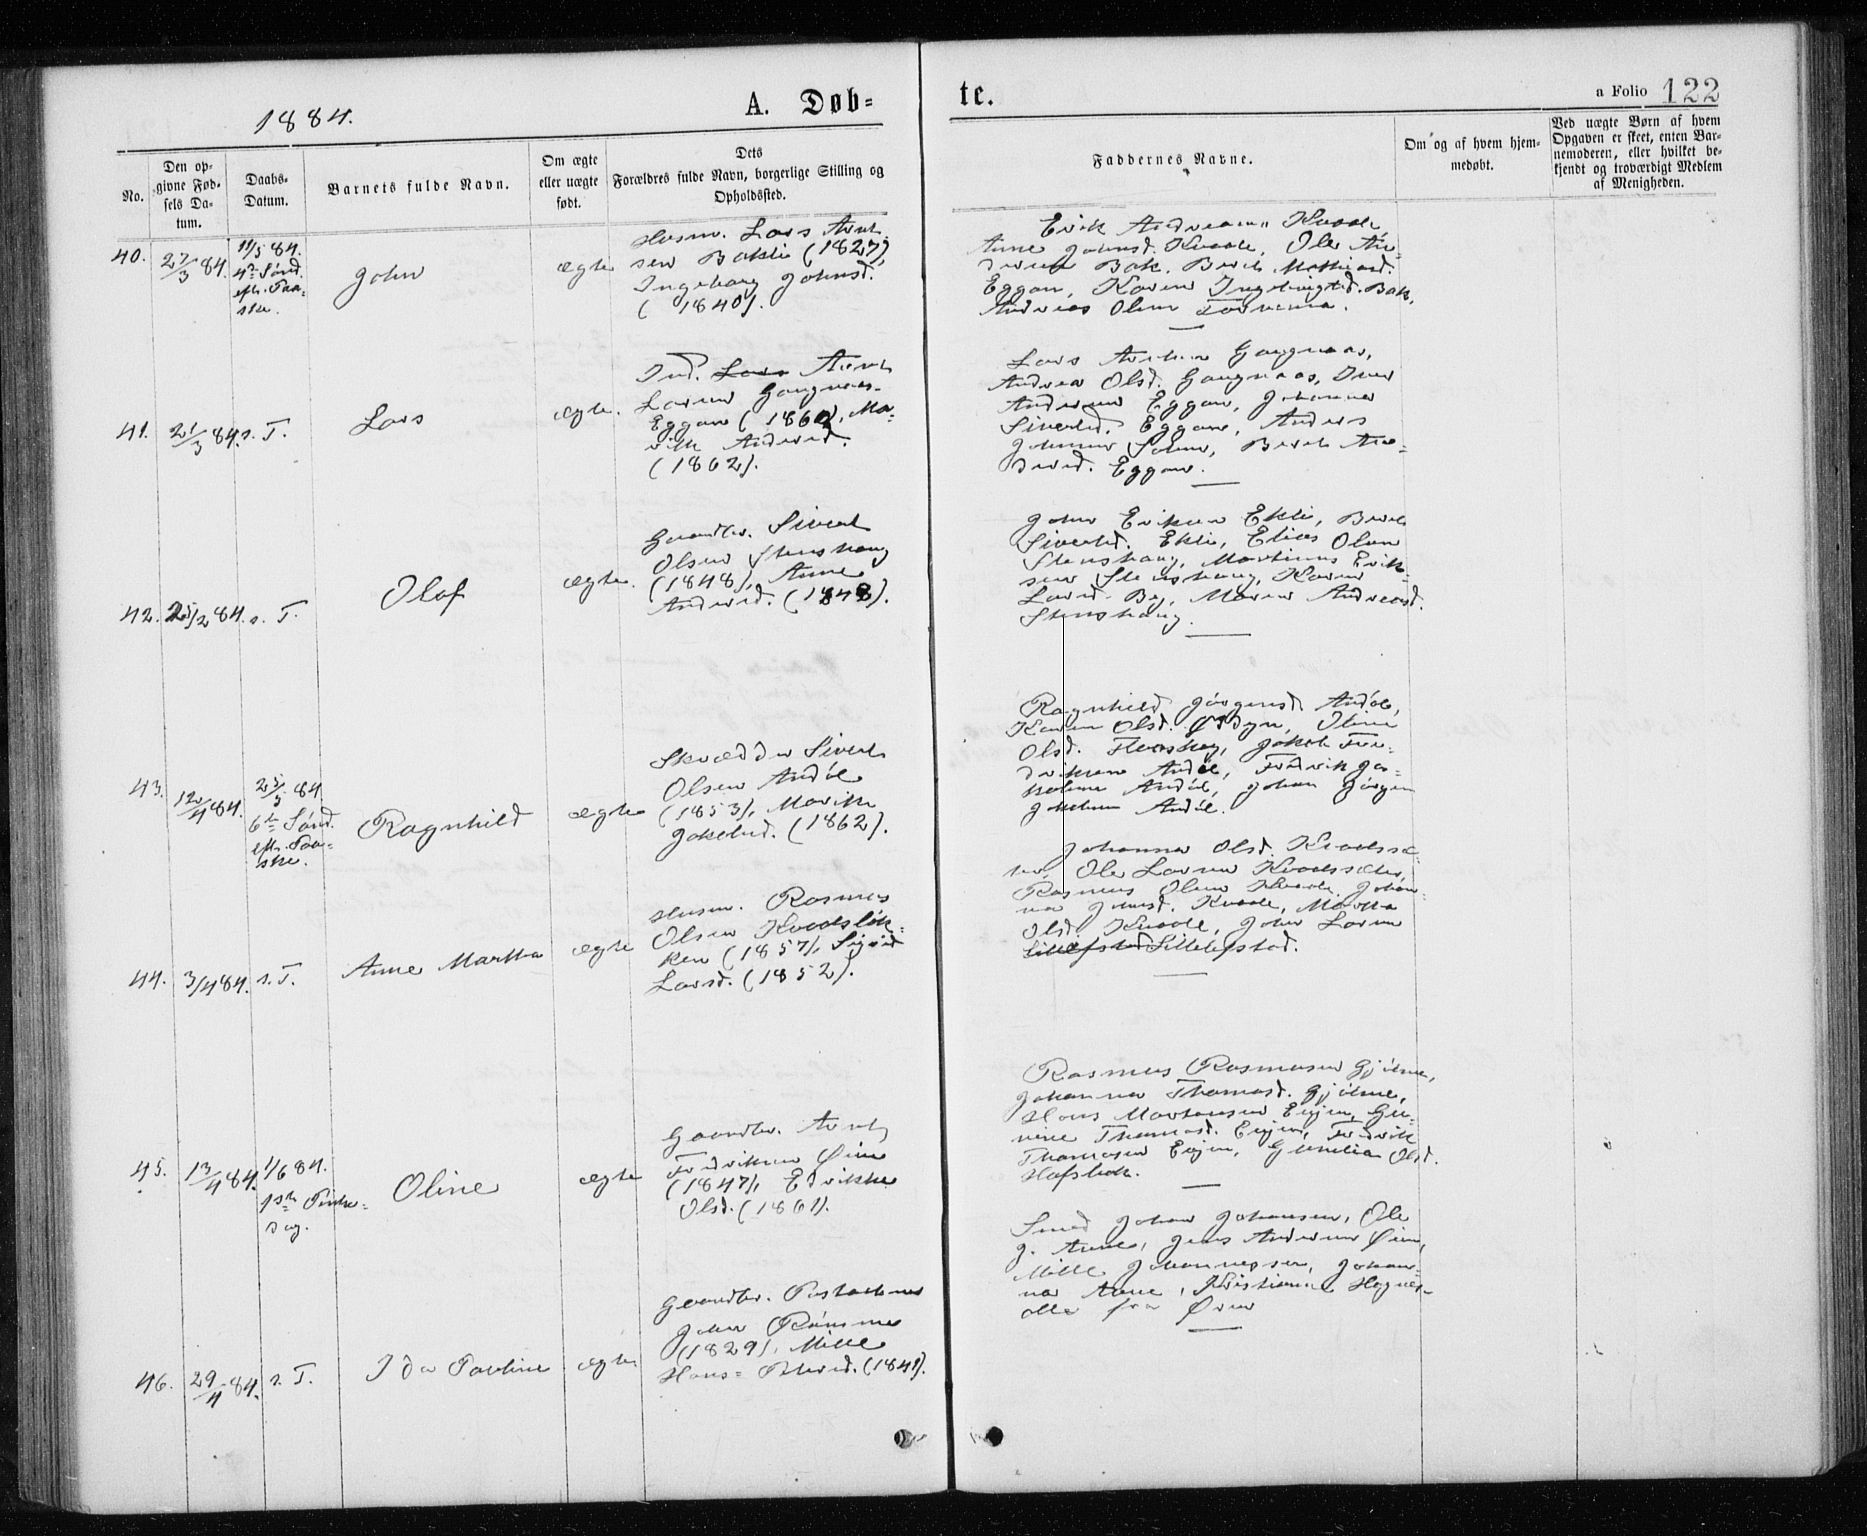 1884.
A. Døb=
te.
a Folio 122
No.
Den op-
givne Fød-
sels Da-
tum.
Daabs-
Datum.
Barnets fulde Navn.
Om ægte
eller uægte
født.
Dets
Forældres fulde Navn, borgerlige Stilling og
Opholdssted.
Faddernes Navne.
Om og af hvem hjem-
medøbt.
Ved uægte Børn af hvem
Opgaven er skeet, enten Bar-
nemoderen, eller hvilket be-
kjendt og troværdigt Medlem
af Menigheden.
40.
27/3 84.
11/5 84.
4de Sønd.
eft. Paa-
ske.
John
ægte
Husm. Lars Arnt-
sen Bakli (1827),
Ingeborg Johnsd.
(1840).
Erik Kvaale,
Anne Johnsd. Kvaale, Ole An-
dersen Bak, Berit
Eggan, Karen Bak,
Andreas Olsen
41.
21/3 84.
s. T.
Lars
ægte.
Ind. Lars Arnt
Larsen Gangnaas-
Eggan (1862), Ma-
rith Andersd.
(1862).
Lars Gangnaas,
Andrea Olsd. Gangnaas, Iver
Andersen Eggan, Johanna
Sivertsd. Eggan, Anders
Johnsen Berit An-
dersd. Eggan.
42.
25/2 84.
s. T.
Olaf
ægte.
Gaardbr. Sivert
Olsen Stenshaug
(1848), Anne
Andersd. (1848).
John Eriksen Ekli, Berit
Sivertsd. Ekli, Elias Olsen
Stenshaug, Martinus Erik-
sen Stenshaug, Karen
Larsd. By, Maren Andreasd.
Stenshaug.
43.
12/4 84.
25/5 84
6te Sønd.
eft. Paa-
ske.
Ragnhild
ægte
Skrædder Sivert
Olsen Andøl
(1853), Marith
Jakobsd. (1862).
Ragnhild Jørgensd. Andøl,
Karen Olsd. Oline
Olsd. Jakob Fre-
driksen Andøl, Fredrik Ja-
kobsen Andøl, Johan Jørgen
Jakobsen Andøl.
44.
3/4 84.
s. T.
Anne Martha
ægte
Husm. Rasmus
Olsen Kvaaleløk-
ken (1857), Sigrid
Larsd. (1852).
Johanna Olsd. Kvaalssæ-
ter, Ole Larsen Kvaalssæter,
Rasmus Olsen Kvaale, Johan-
na Johnsd. Kvaale, Martha
Olsd. Kvaale, John Larsen
45.
13/4 84.
1/6 84.
1ste Pintse-
dag.
Oline
ægte
Gaardbr. Arnt
Fredriksen Øien
(1847), Edvikke
Olsd. (1861).
Rasmus Rasmussen Gjølme,
Johanna Thomasd. Gjølme,
Hans Mortensen Evjen, Gu-
rine Thomasd. Evjen, Fredrik
Thomasen Evjen, Olsd.
Hofsbak.
46.
29/4 84.
s. T.
Ida Pauline
ægte
Gaardbr.
John Rømme
(1829), Mille
Hans= Petersd. (1841).
Smed Johan Johansen, Ole
J. Aune, Jens Andersen Øien,
Mille Johannessen, Johan-
na Aune, Kristiane
alle fra Øien